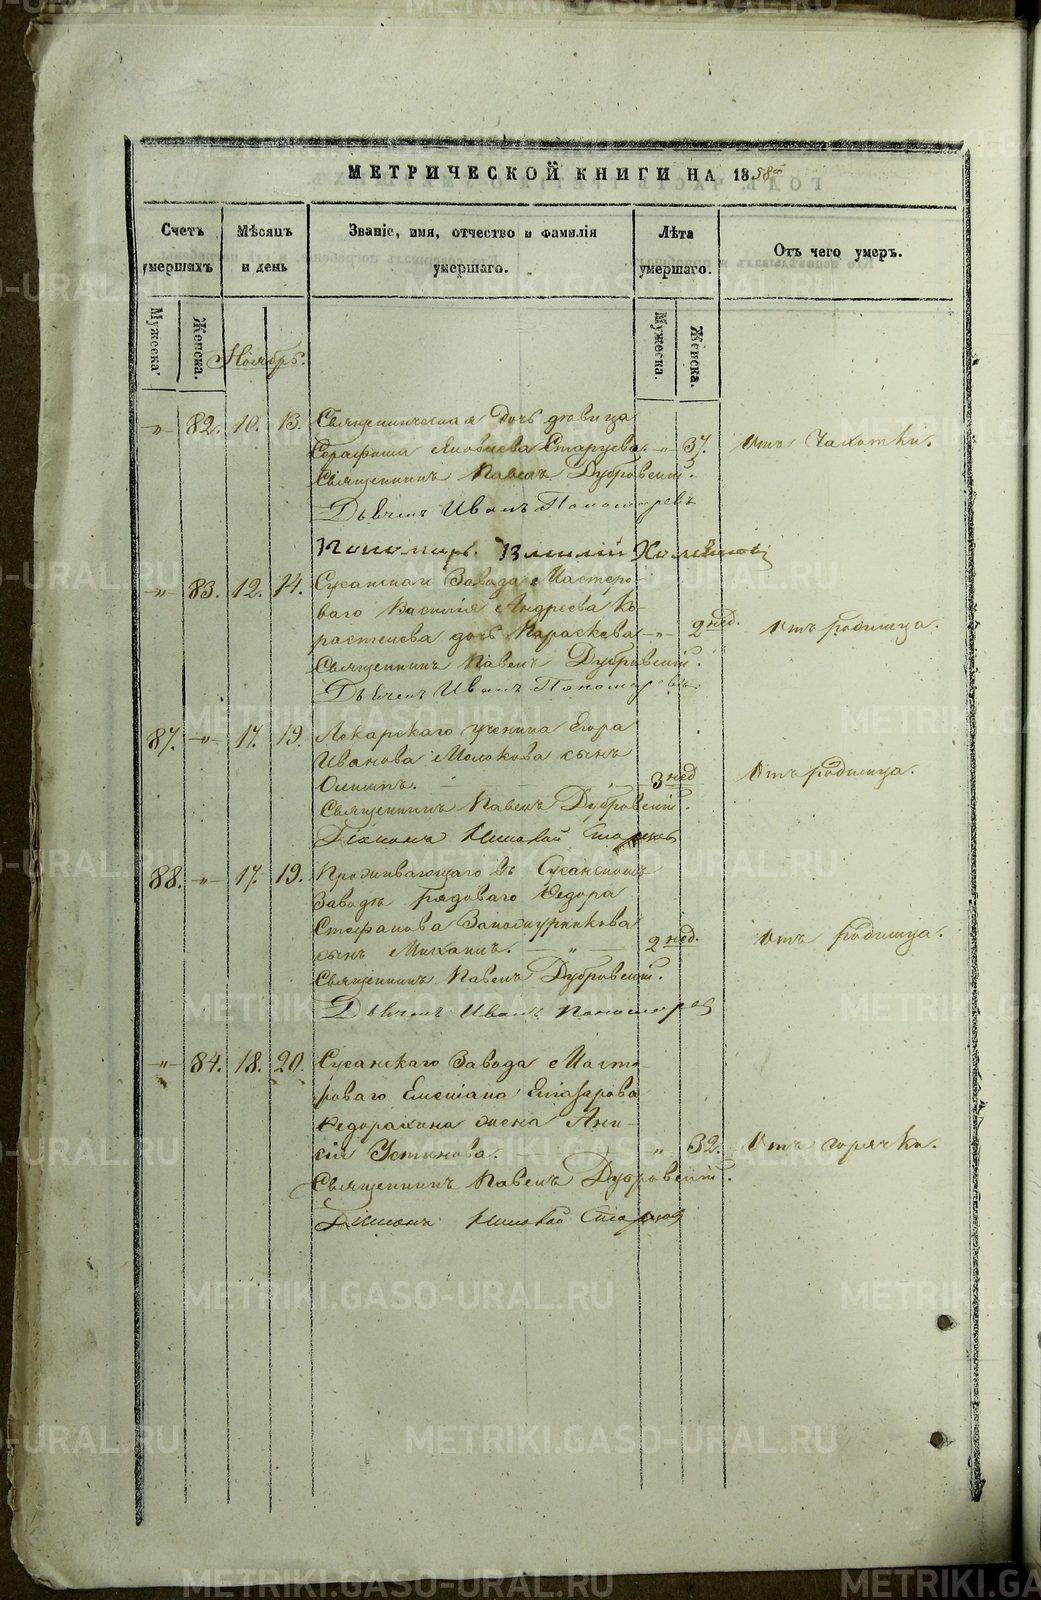 МЕТРИЧЕСКОЙ КНИГИ НА 1858
Счетъ умершихъ
Мѣсяцъ и день
Званіе, имя, отчество и фамилія умершаго.
Лѣта умершаго.
Отъ чего умеръ.
Мужеска. Женска.
Мужеска. Женска.
Ноябрь.
-„- 82. 10. 13. Священническая дочь дѣвица
Серафима Яковлева Старцева. -„- 37. Отъ Чахотки.
Священникъ Павелъ Дубровскій.
Дьячекъ Иванъ Пономаревъ
Пономарь
-„- 83. 12. 14. Сусанскаго Завода Мастеро-
ваго Василія Андреева Ко-
растелева дочь Параскева -„- 2 нед. Отъ родимца.
Священникъ Павелъ Дубровскій.
Дьячекъ Иванъ Пономаревъ.
87. -„- 17. 19. Лекарскаго ученика Егора
Иванова сынъ
3 нед Отъ родимца.
Священникъ Павелъ Дубровскій.
Діаконъ Николай
88. -„- 17. 19. Проживающаго въ Сусанскомъ
Заводѣ Рядоваго Ѳедора
Стефанова
сынъ Михаилъ. „ 2 нед. Отъ родимца.
Священникъ Павелъ Дубровскій.
Дьячекъ Иванъ Пономаревъ
-„- 84. 18. 20. Сусанскаго Завода Масте-
роваго Емельяна Елизарова
Ѳедорахина жена Ани-
сія Устинова. „ 32. Отъ горячки.
Священникъ Павелъ Дубровскій.
Діаконъ Николай
METRIKI.GASO-URAL.RU